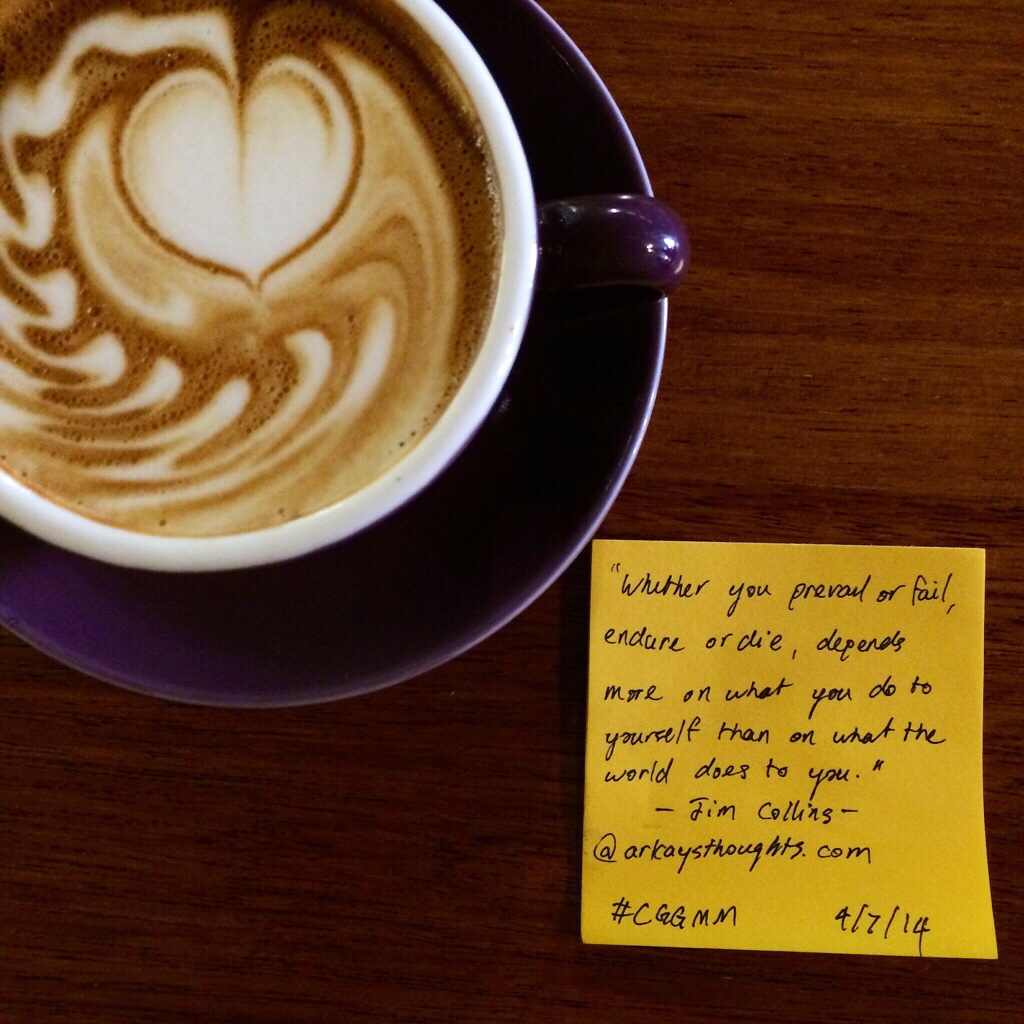 "Whether you prevail or fail,
endure or die, depends
more on what you do to
yourself than on what the
world does to you."
- Jim Collins -
@arkaysthoughts.com
#CGGMM 4/7/14